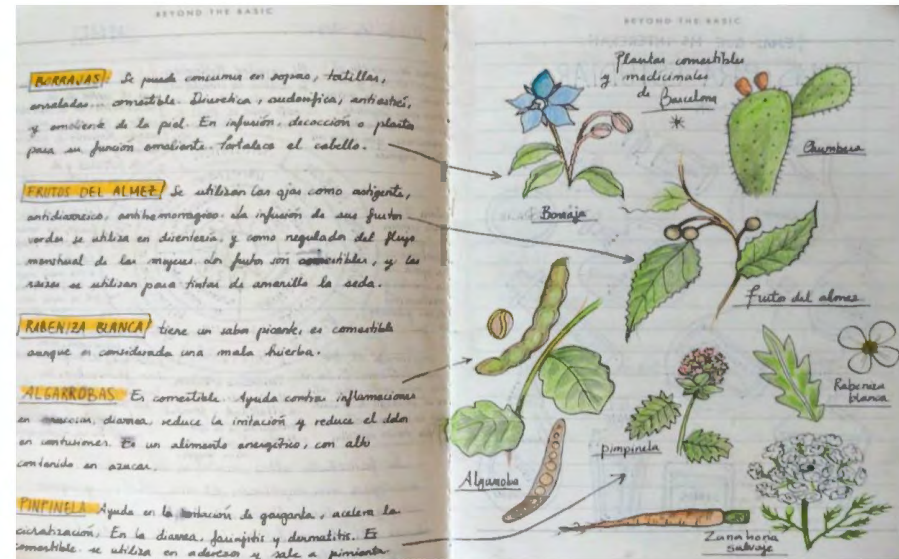 BEYOND THE BASIC
BORRAJAS: Se puede consumir en sopas, tortillas,
ensaladas... comestible. Diuretica, sudorifica, antiestrés,
y emoliente de la piel. En infusión, decocción o planta
para su función emoliente. fortalece el cabello.
FRUTOS DEL ALMEZ Se utilizan las ojas como astigente,
antidiarreico, antihemorragico. la infusión de sus frutos
verdes se utiliza en disenteria, y como regulador del flujo
menstrual de las mujeres. Los frutos son comestibles, y las
raices se utilizan para tintar de amarillo la seda.
RABENIZA BLANCA tiene un sabor picante, es comestible
aunque es considerada una mala hierba.
ALGARROBAS Es comestible. Ayuda contra inflamaciones
en mucosas, diarrea, reduce la irritación y reduce el dolor
en contusiones. Es un alimento energético, con alto
contenido en azucar.
PINPINELA Ayuda en la irritación de garganta, acelera la
cicratización. En la diarrea, faringitis y dermatitis. Es
comestible. se utiliza en aderesos y sale a pimienta.
BEYOND THE BASIC
Plantas comestibles
y medicinales
de Barcelona
Chumbera
Borraja
fruto del almez
Rabeniza
blanca
pimpinela
Algarroba
Zanahoria
Salvaje